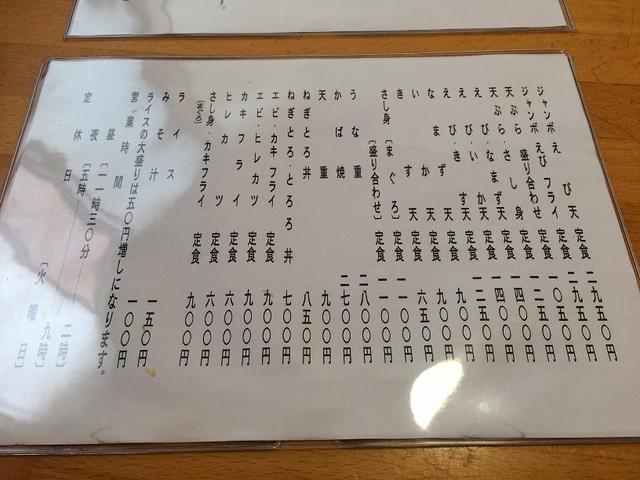 ジャンボえび天 定食 二九五〇円
ジャンボえびフライ 定食 二九五〇円
盛り合わせ 定食 一〇五〇円
天ぷら・さし身 定食 一二五〇円
天ぷら・なまず 定食 一四〇〇円
えび・いか天 定食 一四〇〇円
えび・きす天 定食 一二五〇円
えび天 定食 九〇〇円
なまず天 定食 九〇〇円
いか天 定食 六五〇円
きす天 定食 一一〇〇円
さし身〔まぐろ〕〔盛り合わせ〕 定食 一一〇〇円
うな重 二八〇〇円
かば焼 二七〇〇円
天重 九〇〇円
ねぎとろ丼 八五〇円
ねぎとろ・とろろ丼 七〇〇円
エビ・カキフライ 定食 九〇〇円
エビ・ヒレカツ 定食 九〇〇円
カキフライ 定食 六〇〇円
ヒレカツ 定食 六〇〇円
さし身・カキフライ 定食 九〇〇円
〔まぐろ〕
ライス 一五〇円
みそ汁 一〇〇円
ライスの大盛りは五〇円増しになります。
営業時間
昼〔一一時三〇分 二時〕
夜〔五時 九時〕
定休日〔火曜日〕